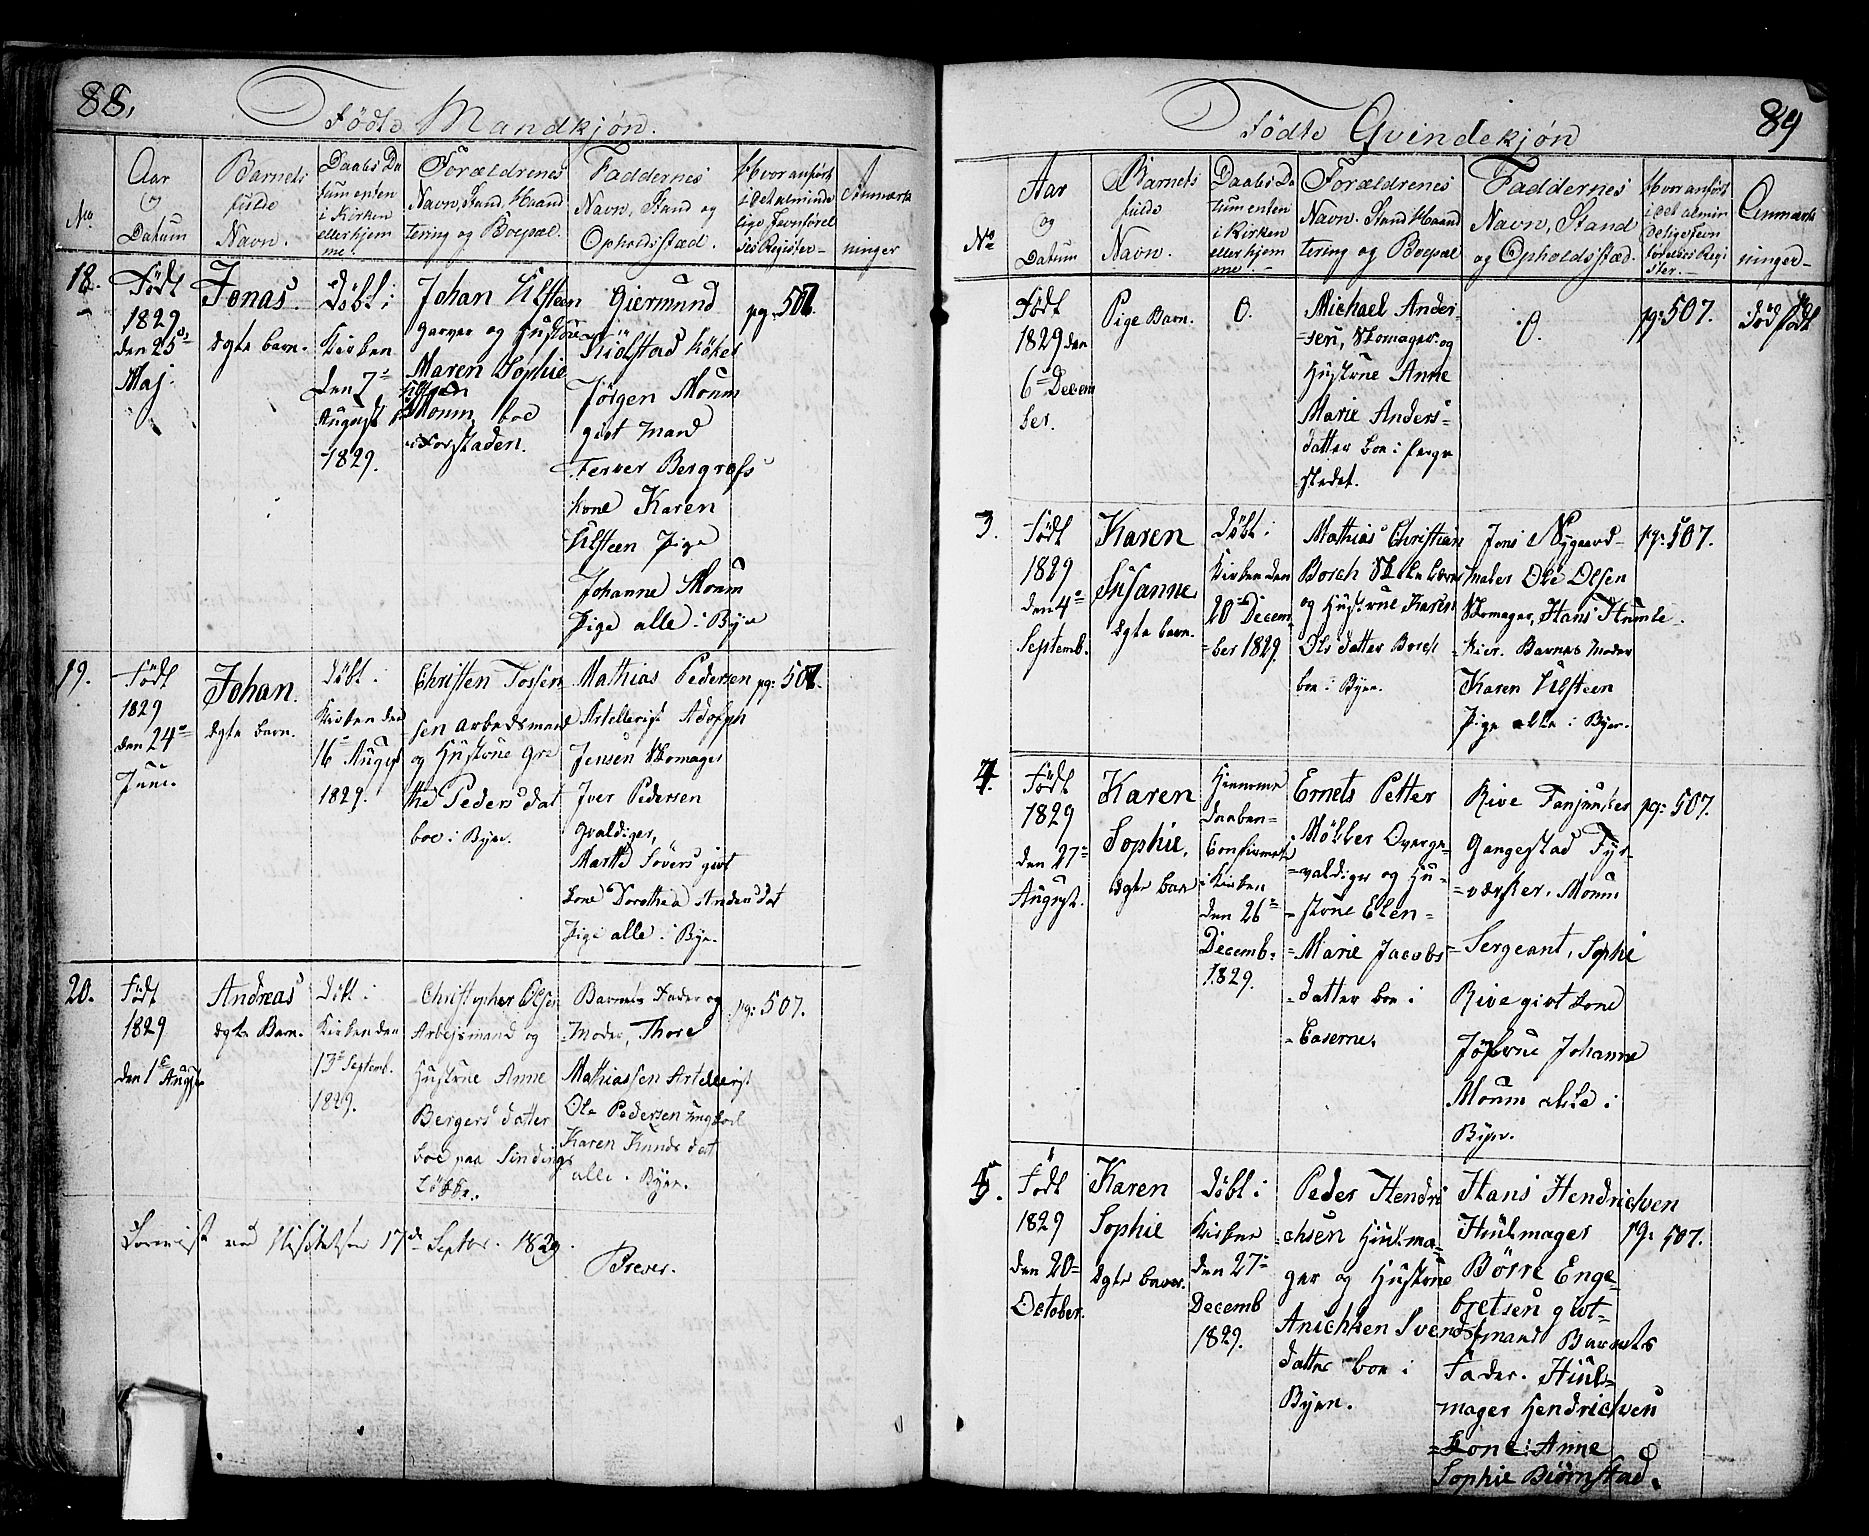 88.
Fødte Mandkjøn.
No.
Aar
og
Datum
Barnets
fulde
Navn.
Daabs Da
tumenten
i Kirken
eller hjem
me.
Forældrenes
Navn, Stand, Haand
tering og Boepæl.
Faddernes
Navn, Stand og
Opholdsstæd.
Hvor anført
i det alminde
lige Jevnførel
ses Register
Anmærk
ninger
18.
Født
1829
den 25de
Maj.
Jonas
ægte barn.
Døbt i
Kirken
den 7de
August
1829.
Johan Ulsteen
garver og Hustrue
Maren Sophie
Moum, boe
i Forstaden.
Giermund
Kiølstad
Jørgen Moum
givt Mand
Ferver Bergrafs
kone Karen
Ulsteen Pige
Johanne Moum
Pige alle i Byen
pg. 507.
19.
Født
1829
den 24de
Juni.
Johan
ægte barn.
Døbt i
Kirken den
16de August
1829.
Christen Tosser
sen arbedsmand
og Hustrue Gre
the Peders dat
boe i Byen.
Mathias Pedersen
Artellerist Adolph
Jensen Skomager
Iver Pedersen
Gvaldiger,
Marthe Sövers givt
kone Dorothea Anders dat
Pige alle i Byen.
pg: 507.
20.
Født
1829
den 1te August
Andreas
ægte Barn.
Døbt i
Kirken den
13de Septemb.
1829.
Christopher Olsen
Arbejsmand og
Hustrue Anne
Bergers datter
boe paa Sindings
Løkke.
Barnets Fader og
Moder, Thore
Mathiassen Artellerist
Ole Pedersen ungkarl
Karen Knuds dat
alle i Byen.
pg: 507.
ved Visitatsen 17de Septbr. 1829.
Prever.
89
Fødte Qvindekjøn
No
Aar
og
Datum
Barnets
fulde
Navn.
Daabs Da
tumenten
i Kirken
eller hjem
me.
Forældrenes
Navn, Stand Haand
tering og Boepæl
Faddernes
Navn, Stand
og Opholdsstæd.
Hvor anført
i det almin
delige Jevn
førelses Regi
ster.
Anmærk
ninger
Født
1829 den
6te Decem
ber.
Pige Barn.
0.
Michael Ander-
=sen, Skomager og
Hustrue Anne
Marie Anders=
datter boe i Færge
stedet.
0.
pg: 507.
Død født
3.
Født
1829
den 4de
Septemb.
Karen
Susanne
ægte barn.
Døbt i
Kirken den
20de Decem
=ber 1829.
Mathias Christian
Borch
og Hustrue Karen
Ols datter Borch
boe i Byen.
Jens Nygaard
maler Ole Olsen
Skomager, Hans Humle.
Kier. Barnets Moder
Karen Ulsteen
Pige alle i Byen.
pg: 507.
4.
Født
1829
den 27de
August.
Karen
Sophie.
ægte barn
Hiemme
daaben
Confirmert
i Kirken
den 26de
Decemb.
1829.
Ernets Petter
Møkler Overge=
=valdiger og Hu=
=strue Elen=
=Marie Jacobs
=datter boe i
=Caserne.
Rive Fanjunker
Gangestad Fyr=
=værker. Moum
Sergeant, Sophi
Rive givt kone
Johanne
Moum alle i
Byen.
pg: 507.
5.
Født
1829
den 20de
October.
Karen
Sophie
ægte barn.
Døbt i
Kirken
den 27de
Decemb
1829.
Peder Hendri
chsen Hiulma=
ger og Hustrue
Anichken Svends
datter boe i
Byen.
Hans Hendrichsen
Hiulmager
Börre Enge=
bretsen givt=
mand Barnets
Fader. Hiul=
mager Hendrichsen
=kone: Anne
Sophie Biörnstad.
pg: 507.